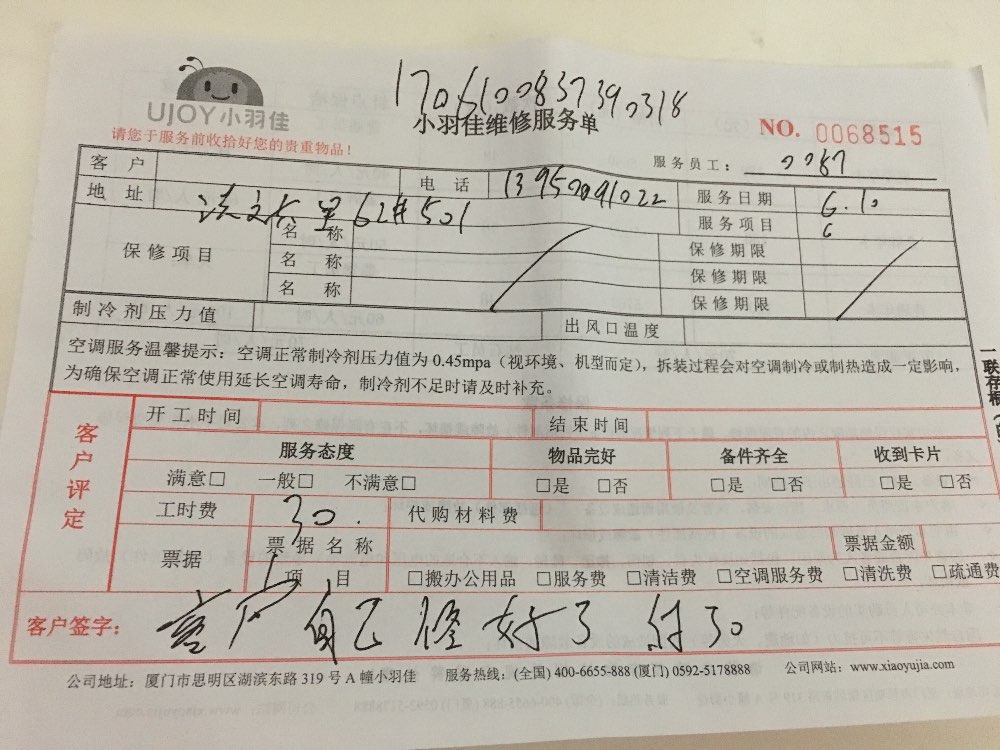 1706100837390318
UJOY小羽佳
小羽佳维修服务单
NO. 0068515
请您于服务前收拾好您的贵重物品！
服务员工： 0087
客户 电话 13950091022 服务日期 6.10
地址 62# 501 服务项目
保修项目 名称 保修期限
名称 保修期限
名称 保修期限
制冷剂压力值 出风口温度
空调服务温馨提示：空调正常制冷剂压力值为 0.45mpa（视环境、机型而定），拆装过程会对空调制冷或制热造成一定影响，
为确保空调正常使用延长空调寿命，制冷剂不足时请及时补充。
一联存根
客户评定
开工时间 结束时间
服务态度 物品完好 备件齐全 收到卡片
满意□ 一般□ 不满意□ □是 □否 □是 □否 □是 □否
工时费 30. 代购材料费
票据 票据名称 票据金额
项目 □搬办公用品 □服务费 □清洁费 □空调服务费 □清洗费 □疏通费
客户签字： 客户自己修好了 付30
公司地址：厦门市思明区湖滨东路 319 号 A 幢小羽佳 服务热线：(全国) 400-6655-888 (厦门) 0592-5178888 公司网站：www.xiaoyujia.com